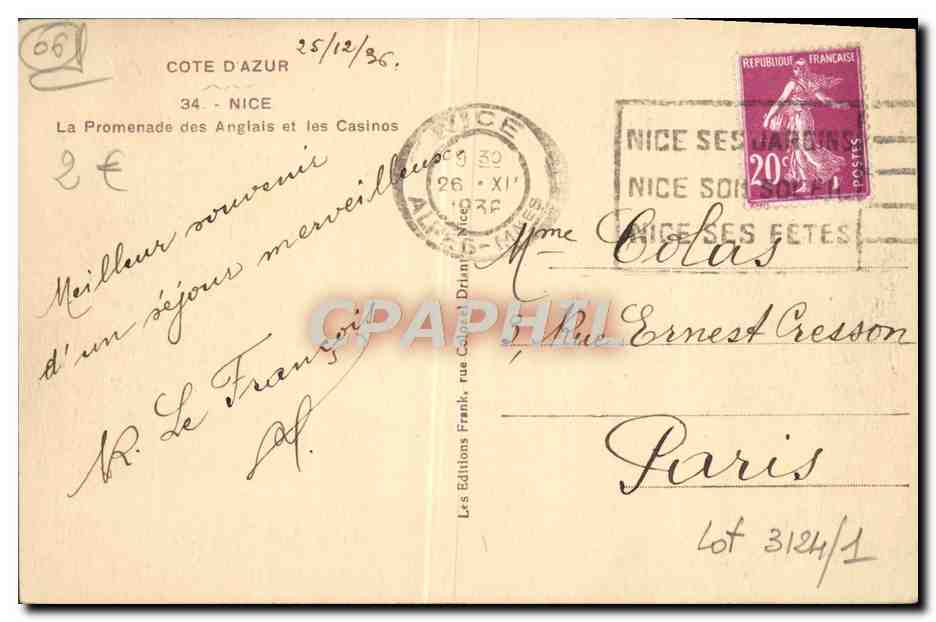 06
25/12/36.
COTE D'AZUR
34. - NICE
La Promenade des Anglais et les Casinos
2 €
Meilleur souvenir
d'un séjour merveilleux
R. Le François
Les Editions Frank, rue Colonel Driant, Nice
NICE
9 30
26 · XII
1936
ALPES-MMES
NICE SES JARDINS
NICE SON SOLEIL
NICE SES FETES
REPUBLIQUE FRANÇAISE
20c
POSTES
Mme Colas
Rue Ernest Cresson
Paris
Lot 3124/1
CPAPHIL